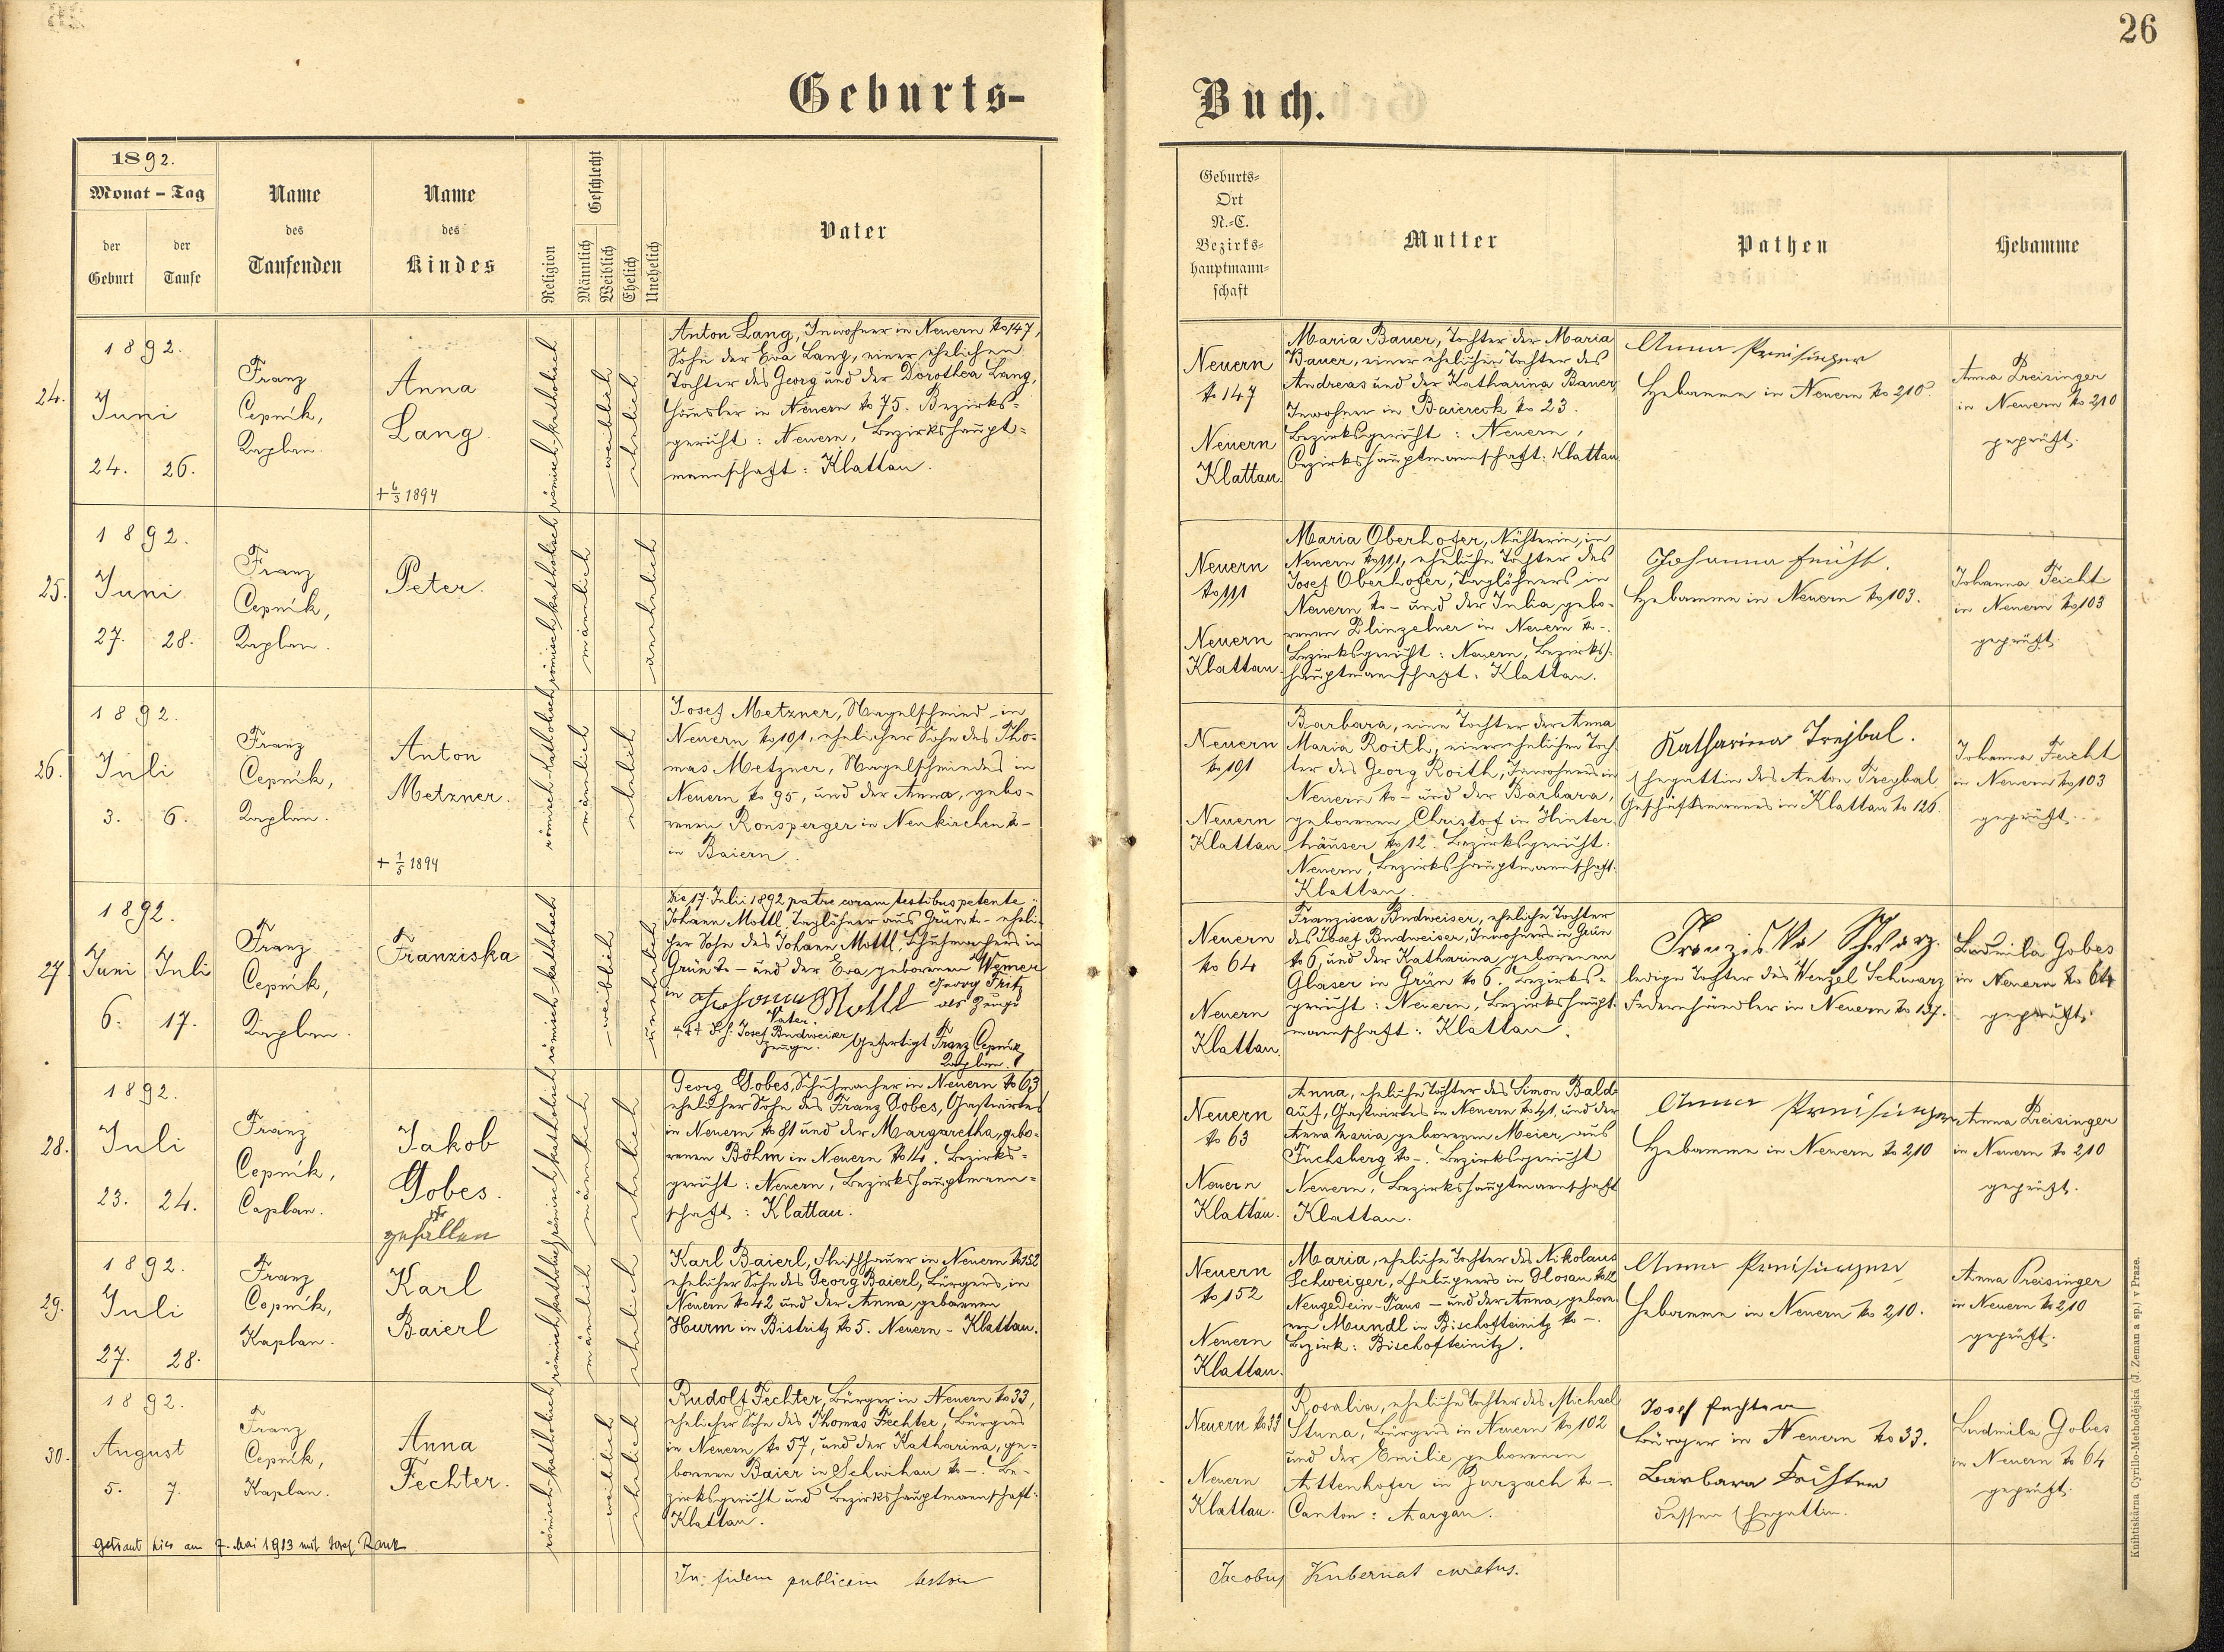 26
Geburts-
Buch.
1892.
Monat - Tag
der Geburt
der Taufe
Name des Taufenden
Name des Kindes
Religion
Geschlecht
Männlich
Weiblich
Ehelich
Unehelich
Vater
Geburts-
Ort
N.-C.
Bezirks-
hauptmann-
schaft
Mutter
Pathen
Hebamme
24.
1892.
Juni
24. 26.
Franz
Cepnik,
Kaplan.
Anna
Lang
+ 6/3 1894
römisch-katholisch
weiblich
ehelich
Anton Lang, Inwohner in Neuern No 147,
Sohn der Eva Lang, einer ehelichen
Tochter des Georg und der Dorothea Lang,
Häusler in Neuern No 75. Bezirks-
gericht: Neuern, Bezirkshaupt-
mannschaft: Klattau.
Neuern
No 147
Neuern
Klattau.
Maria Bauer, Tochter der Maria
Bauer, einer ehelichen Tochter des
Andreas und der Katharina Bauer,
Inwohner in Baiereck No 23.
Bezirksgericht: Neuern,
Bezirkshauptmannschaft: Klattau.
Anna Preisinger
Hebamme in Neuern No 210
Anna Preisinger
in Neuern No 210
geprüft.
25.
1892.
Juni
27. 28.
Franz
Cepnik,
Kaplan.
Peter.
römisch-katholisch
männlich
unehelich
Neuern
No 111
Neuern
Klattau.
Maria Oberhofer, Nähterin, in
Neuern No 111, eheliche Tochter des
Josef Oberhofer, Taglöhners in
Neuern No - und der Julia, gebo-
renen Blinzelner in Neuern No -.
Bezirksgericht: Neuern, Bezirks-
hauptmannschaft: Klattau.
Johanna Feicht.
Hebamme in Neuern No 103.
Johanna Feicht
in Neuern No 103
geprüft.
26.
1892.
Juli
3. 6.
Franz
Cepnik,
Kaplan.
Anton
Metzner.
+ 1/5 1894
römisch-katholisch
männlich
ehelich
Josef Metzner, Nagelschmied in
Neuern No 191, ehelicher Sohn des Tho-
mas Metzner, Nagelschmiedes in
Neuern No 95, und der Anna, gebo-
renen Ronsperger in Neukirchen No -
in Baiern.
Neuern
No 191
Neuern
Klattau
Barbara, eine Tochter der Anna
Maria Roith, einer ehelichen Toch-
ter des Georg Roith, Inwohners in
Neuern No - und der Barbara,
geborenen Christof in Hinter-
häuser No 12. Bezirksgericht:
Neuern, Bezirkshauptmannschaft:
Klattau.
Katharina Trejbal.
Ehegattin des Anton Treybal
Geschäftsmannes in Klattau No 126.
Johanna Feicht
in Neuern No 103
geprüft.
27.
1892.
Juni Juli
6. 17.
Franz
Cepnik,
Kaplan.
Franziska
römisch-katholisch
weiblich
unehelich
Die 17. Julii 1892 patre coram testibus petente:
Johann Mottl, Taglöhner aus Grün No - eheli-
cher Sohn des Johann Mottl, Schuhmachers in
Grün No - und der Eva, geborenen Wemer
in
Georg Fritz
als Zeuge
Johann Mottl
Vater.
+++ Josef Budweiser
Zeuge.
Gefertigt Franz Cepnik
Kaplan.
Neuern
No 64
Neuern
Klattau.
Franzisca Budweiser, eheliche Tochter
des Josef Budweiser, Inwohners in Grün
No 6, und der Katharina, geborenen
Glaser in Grün No 6. Bezirks-
gericht: Neuern, Bezirkshaupt-
mannschaft: Klattau.
Franziska Schwarz.
ledige Tochter des Wenzel Schwarz
Federnhändler in Neuern No 137.
Ludmila Gobes
in Neuern No 64
geprüft.
28.
1892.
Juli
23. 24.
Franz
Cepnik,
Caplan.
Jakob
Gobes.
gefallen
römisch-katholisch
männlich
ehelich
Georg Gobes, Schuhmacher in Neuern No 63,
ehelicher Sohn des Franz Gobes, Gastwirtes
in Neuern No 81 und der Margaretha, gebo-
renen Böhm in Neuern No 14. Bezirks-
gericht: Neuern, Bezirkshauptmann-
schaft: Klattau.
Neuern
No 63
Neuern
Klattau.
Anna, eheliche Tochter des Simon Bald-
auf, Gastwirtes in Neuern No 41, und der
Anna Maria, geborenen Meier aus
Fuchsberg No -. Bezirksgericht
Neuern, Bezirkshauptmannschaft
Klattau.
Anna Preisinger
Hebamme in Neuern No 210
Anna Preisinger
in Neuern No 210
geprüft.
29.
1892.
Juli
27. 28.
Franz
Cepnik,
Kaplan.
Karl
Baierl
römisch-katholisch
männlich
ehelich
Karl Baierl, Fleischhauer in Neuern No 152
ehelicher Sohn des Georg Baierl, Bürgers, in
Neuern No 42 und der Anna, geborenen
Hurm in Bistritz No 5. Neuern - Klattau.
Neuern
No 152
Neuern
Klattau.
Maria, eheliche Tochter des Nikolaus
Schweiger, in Glosau No 12
Neugedein-Taus - und der Anna, gebore-
nen Mundl in Bischofteinitz No -.
Bezirk: Bischofteinitz.
Anna Preisinger
Hebamme in Neuern No 210.
Anna Preisinger
in Neuern No 210
geprüft.
30.
1892.
August
5. 7.
Franz
Cepnik,
Kaplan.
Anna
Fechter.
römisch-katholisch
weiblich
ehelich
Rudolf Fechter, Bürger in Neuern No 33,
ehelicher Sohn des Thomas Fechter, Bürgers
in Neuern No 57, und der Katharina, ge-
borenen Baier in Schwihau No -. Be-
zirksgericht und Bezirkshauptmannschaft:
Klattau.
getraut hier am 7. Mai 1913 mit Josef Rank
Neuern No 33
Neuern
Klattau.
Rosalia, eheliche Tochter des Michael
Stuna, Bürgers in Neuern No 102
und der Emilie, geborenen
Attenhofer in Zurzach No -
Canton: Aargau.
Josef Fechter
Bürger in Neuern No 33.
Barbara Fechter
dessen Ehegattin.
Ludmila Gobes
in Neuern No 64
geprüft.
In fidem publicam testor
Jacobus Kubernat curatus.
Knihtiskárna Cyrillo-Methodějská (J. Zeman a sp.) v Praze.